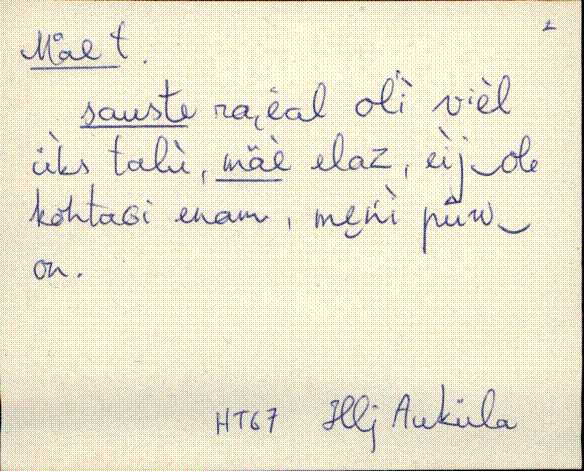 Mäe t.
sauste rajéal oli vièl
üks talù, mäè elaz, eij ole
kohtaGi enam, meńi pūw
on.
HT67 Illj Auküla